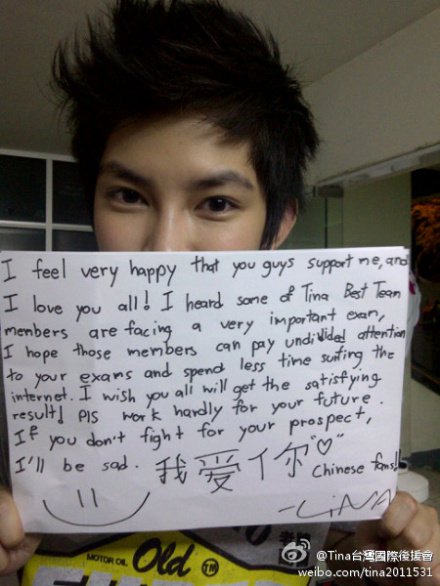 I feel very happy that you guys support me, and
I love you all! I heard some of Tina Best Team
menbers are facing a very important exam,
I hope those members can pay undivided attention
to your exams and spend less time surfing the
internet. I wish you all will get the satisfying
result! Pls work hardly for your future.
If you don't fight for your prospect,
I'll be sad. 我爱你"♡" Chinese fans!!
-LiNA
MOTOR OIL
Old TM
@Tina台灣國際後援會
weibo.com/tina2011531